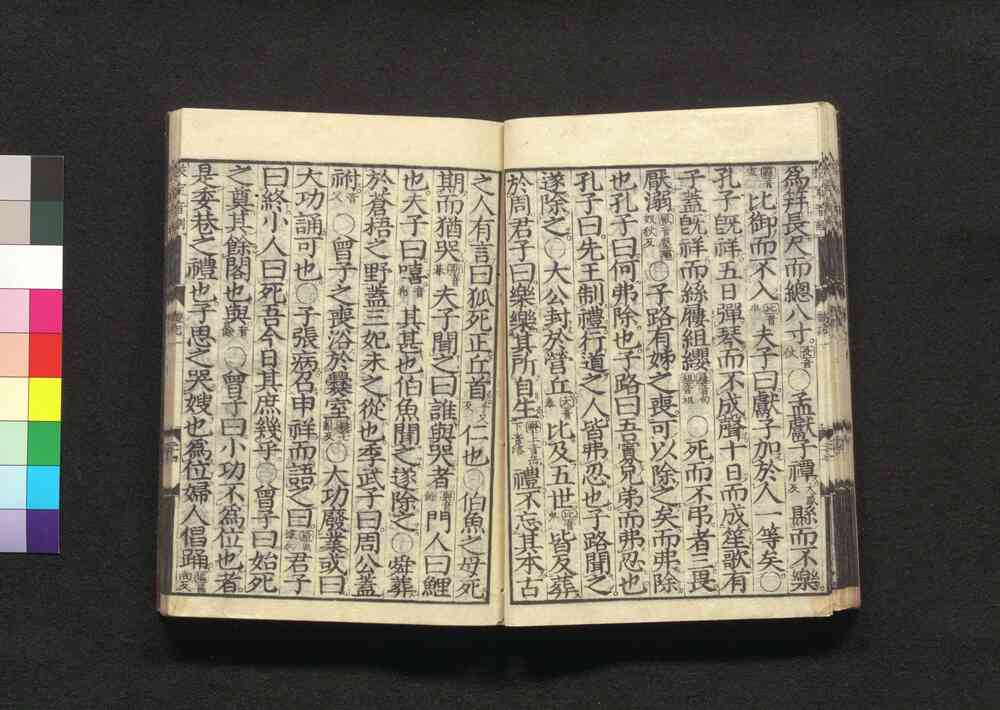 爲笄長尺而總八寸。長音仗○孟獻子禫縣而不樂
比御而不入夫子曰獻子加於人一等矣○
孔子旣祥五日彈琴而不成聲十日而成笙歌有
子蓋旣祥而絲屨組纓○死而不弔者三畏
厭溺奴狄反○子路有姊之喪可以除之矣而弗除
也孔子曰何弗除也子路曰吾寡兄弟而弗忍也
孔子曰先王制禮行道之人皆弗忍也子路聞之
遂除之○大公封於營丘大音泰比及五世皆反葬
於周君子曰樂樂其所自生禮不忘其本古
之人有言曰狐死正丘首仁也○伯魚之母死
期而猶哭夫子聞之曰誰與哭者門人曰鯉
也夫子曰嘻其甚也伯魚聞之遂除之○舜葬
於蒼梧之野蓋三妃未之從也季武子曰周公蓋
祔○曾子之喪浴於爨室○大功廢業或曰
大功誦可也○子張病召申祥而語之曰君子
曰終小人曰死吾今日其庶幾乎○曾子曰始死
之奠其餘閣也與○曾子曰小功不爲位也者
是委巷之禮也子思之哭嫂也爲位婦人倡踊